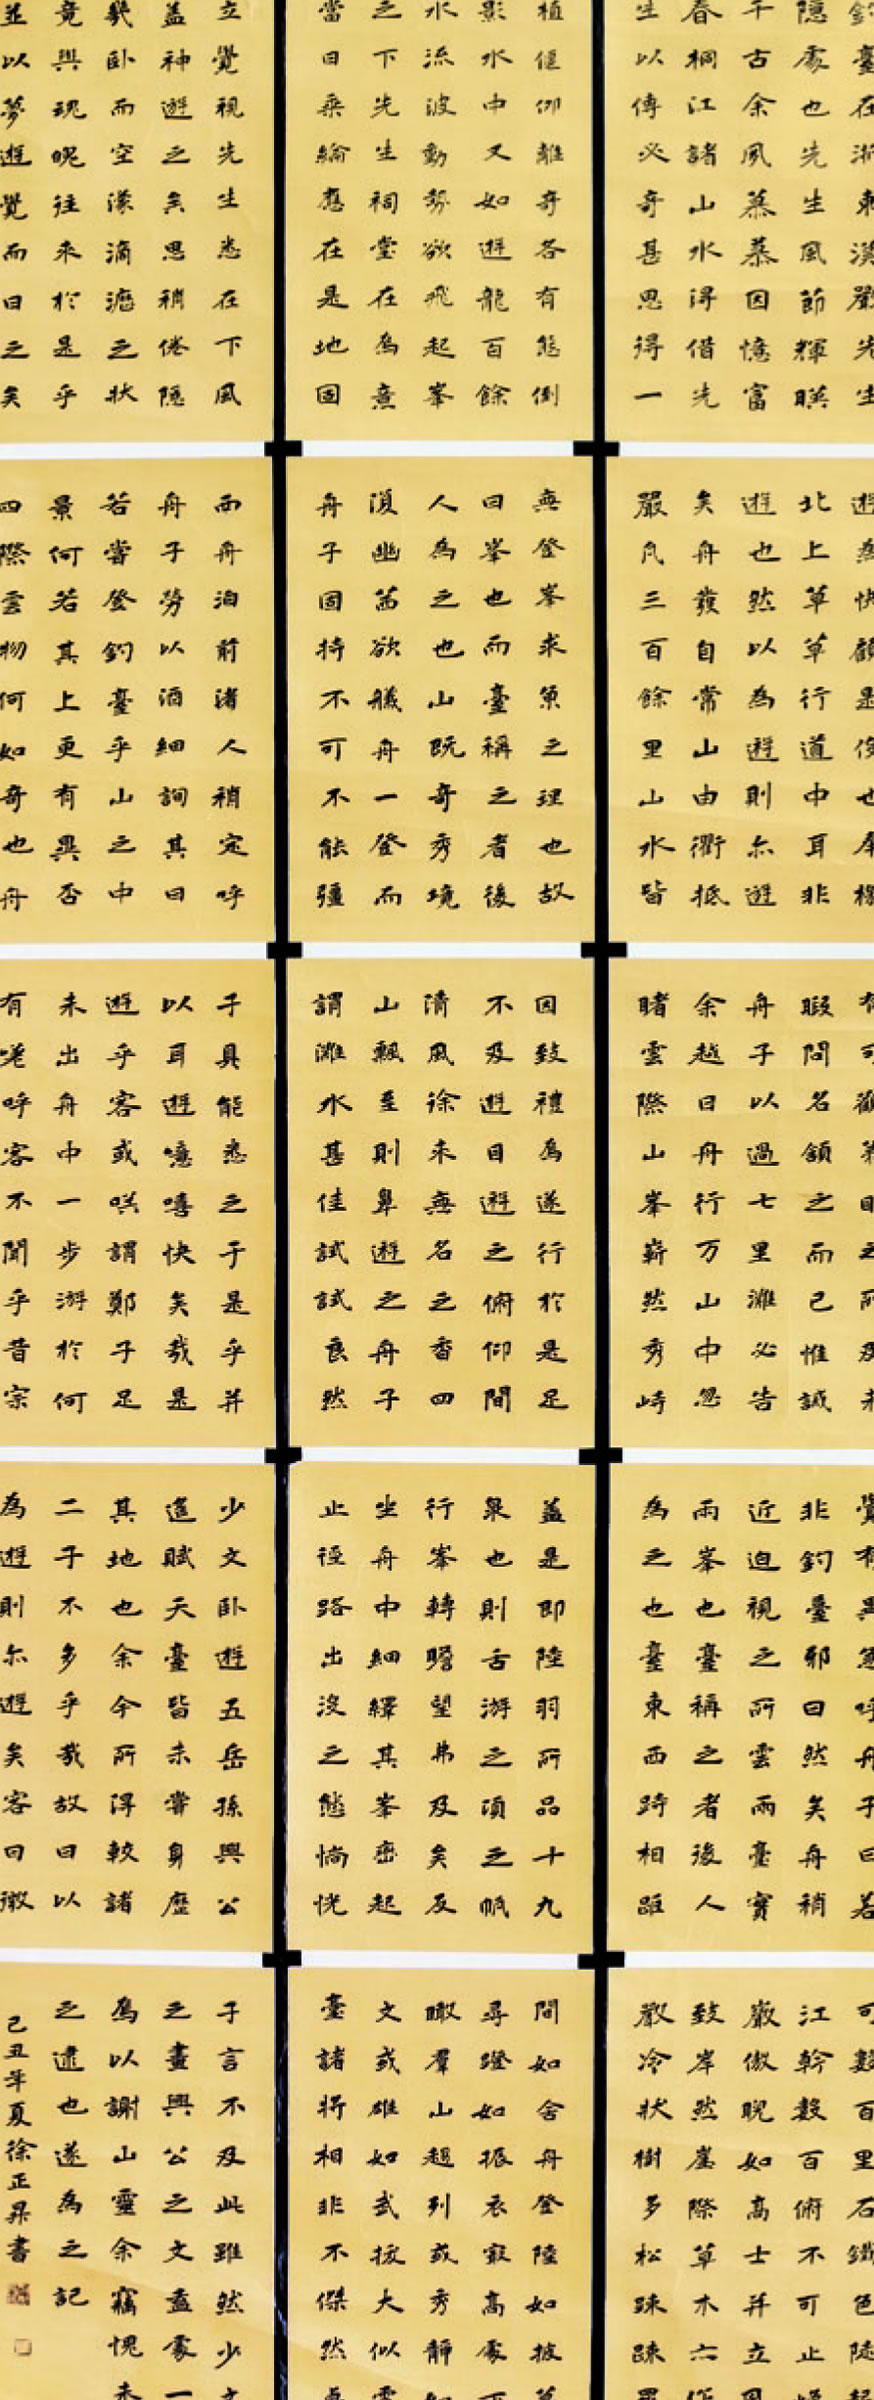 釣臺在浙東漢嚴先生
隱處也先生風節輝暎
千古余夙慕慕因憶富
春桐江諸山水得借先
生以傳必奇甚思得一
遊為快顧是役也奉檄
北上草草行道中耳非
遊也然以為遊則亦遊
矣舟發自常山由衢抵
嚴凡三百餘里山水皆
有可觀第目之所及未
暇問名頷之而已惟誡
舟子以過七里灘必告
余越日舟行万山中忽
睹雲際山峯嶄然秀峙
覺有異急呼舟子曰若
非釣臺邪曰然矣舟稍
近迫視之所雲兩臺實
兩峯也臺稱之者後人
為之也臺東西跱相距
可數百里石鐵色陡起
江幹數百俯不可止
巖傲睨如高士并立風
致岸然崖際草木亦作
嚴冷狀樹多松疎疎羅
植偃仰離奇各有態倒
影水中又如遊龍百餘
水流波動勢欲飛起峯
之下先生祠堂在焉意
當日垂綸應在是地固
無登峯求魚之理也故
曰峯也而臺稱之者後
人為之也山既奇秀境
復幽茜欲艤舟一登而
舟子固持不可不能彊
因致禮焉遂行於是足
不及遊目遊之俯仰間
清風徐來無名之香四
山飄至則鼻遊之舟子
謂灘水甚佳試試良然
蓋是即陸羽所品十九
泉也則舌游之頃之帆
行峯轉瞻望弗及矣反
坐舟中細繹其峯巒起
止徑路出沒之態惝恍
間如舍舟登陸如披草
尋磴如振衣最高處下
瞰羣山趨列或秀靜如
文或雄如武拔大似雲
臺諸將相非不傑然
立覺視先生悉在下風
蓋神遊之矣思稍倦隱
幾臥而空濛滴瀝之狀
竟與魂魄往來於是乎
並以夢遊覺而日之矣
而舟泊前渚人稍定呼
舟子勞以酒細詢其曰
若嘗登釣臺乎山之中
景何若其上更有異否
四際雲物何如奇也舟
子具能悉之于是乎并
以耳遊噫嘻快矣哉是
遊乎客或咲謂鄭子足
未出舟中一步游於何
有嗟呼客不聞乎昔宗
少文臥遊五岳孫興公
遙賦天臺皆未嘗身歷
其地也余今所得較諸
二子不多乎哉故曰以
為遊則亦遊矣客曰微
子言不及此雖然少文
之畫興公之文盍處一
焉以謝山靈余竊愧未
之逮也遂為之記
己丑年夏徐正昇書